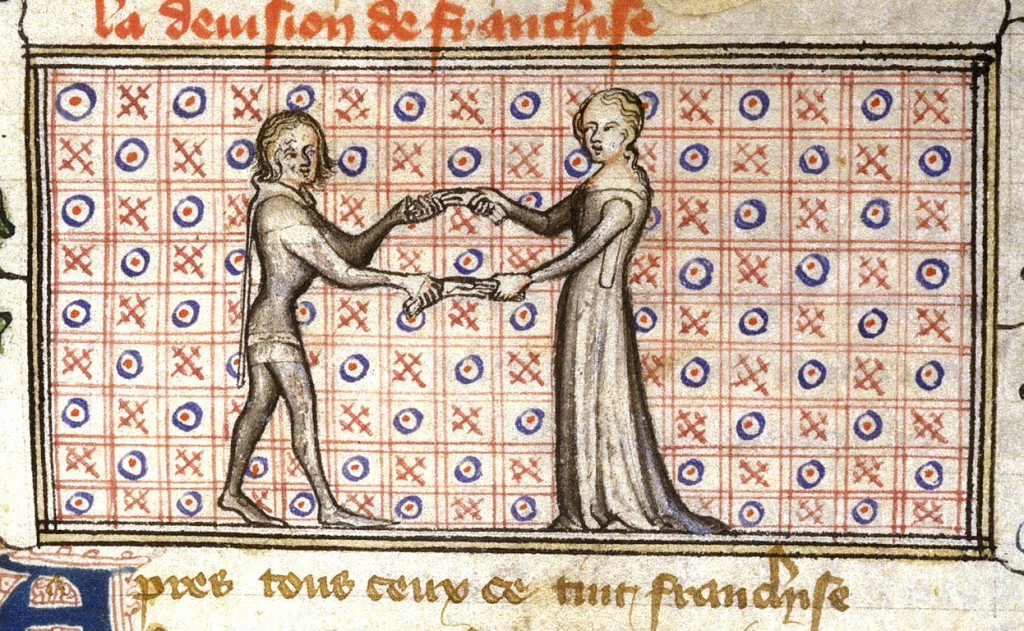 la deuision de franchise
Apres tous ceux ce tint franchise